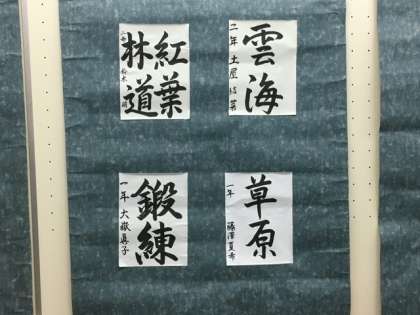 雲海
二年 土屋 結菜
紅葉
林道
草原
一年
藤澤夏希
鍛練
一年 大嶽真子